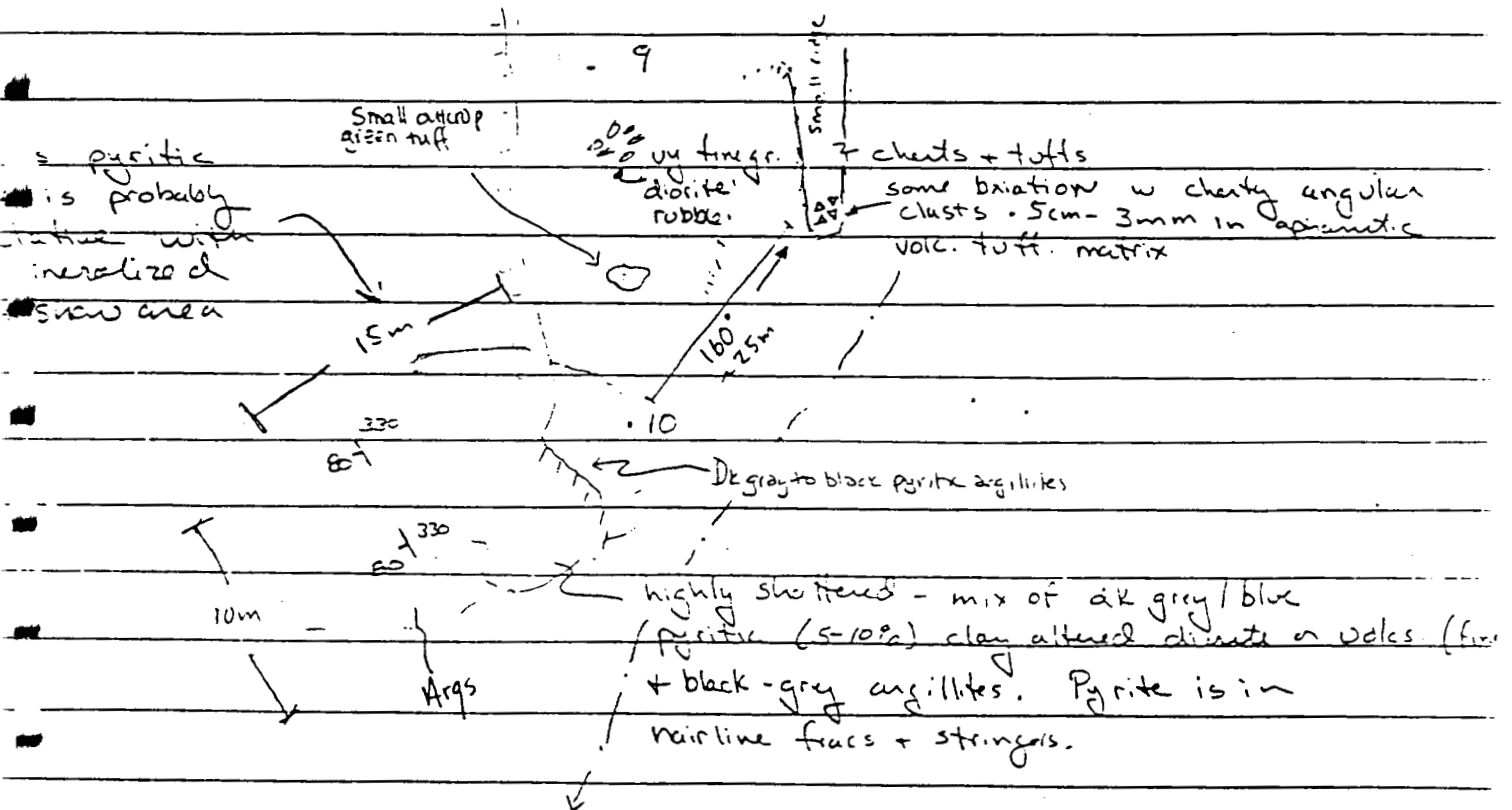 9
Small ridge
Small outcrop
green tuff
s pyritic
is probably
with
ineralized
area
vy finegr.
diorite
rubble.
? cherts + tuffs
some bxiation w cherty angular
clasts .5cm - 3mm in
volc. tuff. matrix
15m
160°
25m
10
330
80
Dk gray to black pyritic argillites
330
80
10m
Args
highly shattered - mix of dk grey/blue
pyritic (5-10%) clay altered diorite or volcs (fine
+ black-grey argillites. Pyrite is in
hairline fracs + stringers.